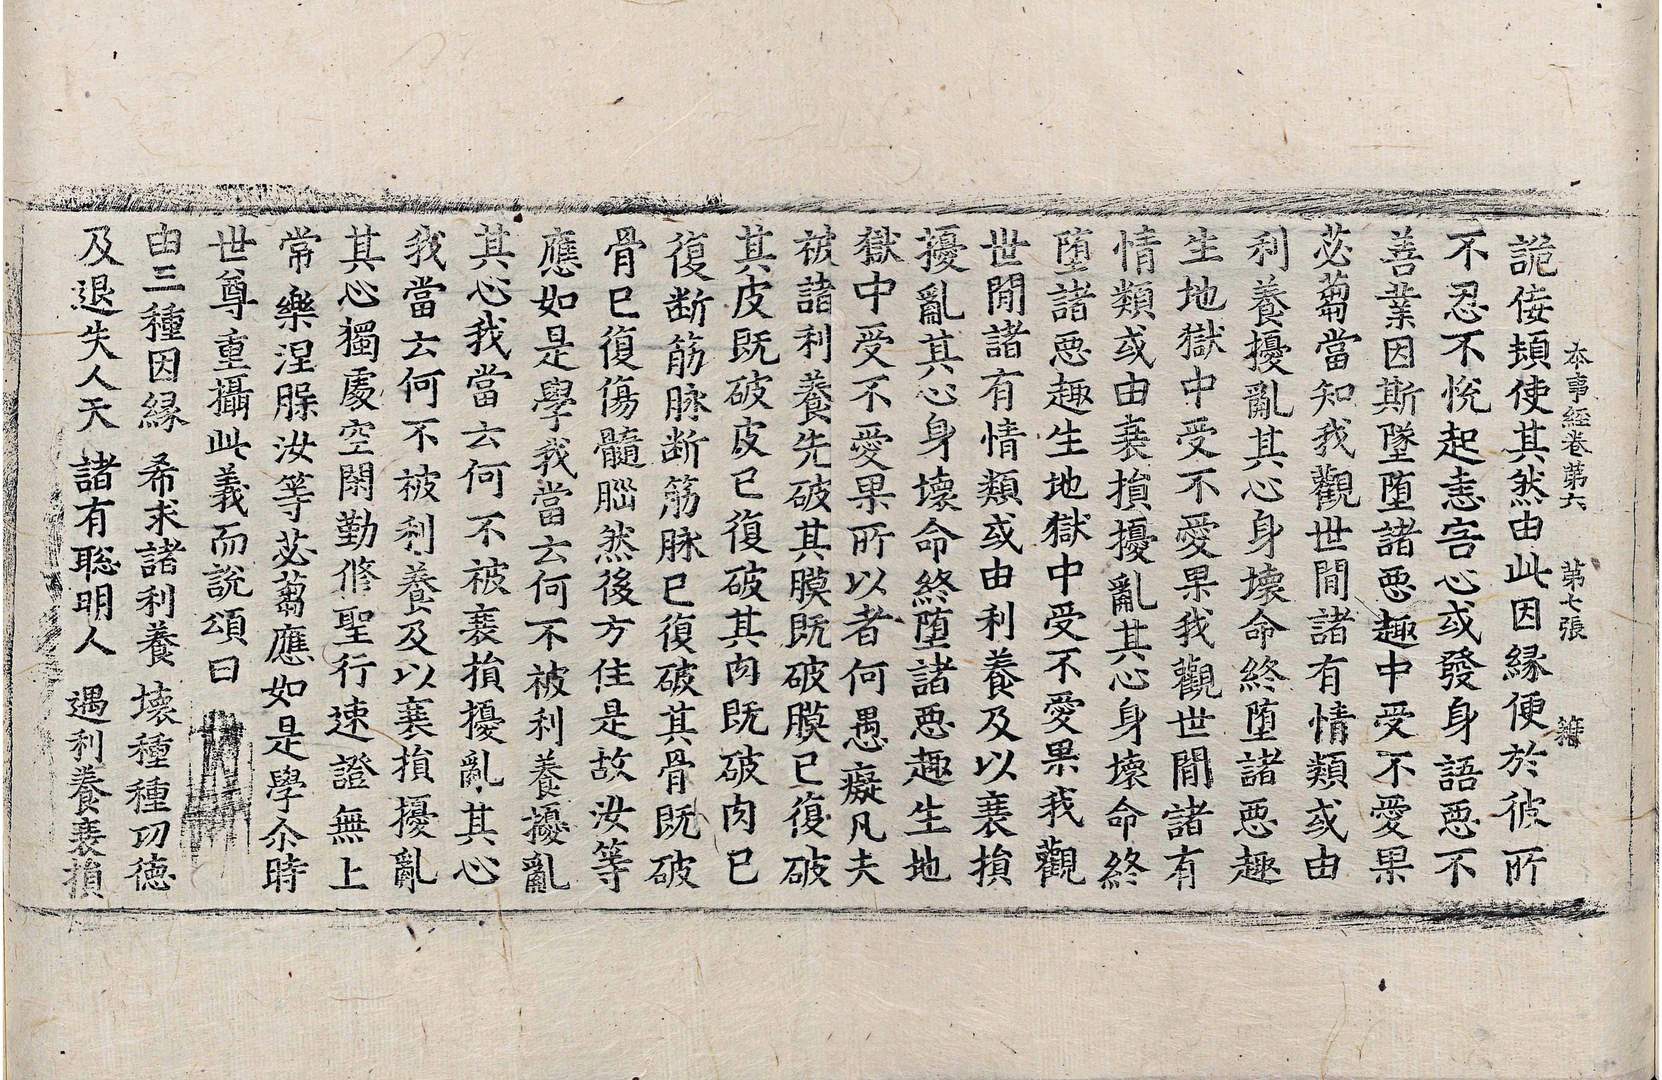 本事經卷第六 第七張 籍
詭侫頻使其然由此因緣便於彼所
不忍不悅起恚害心或發身語惡不
善業因斯墜墮諸惡趣中受不愛果
苾蒭當知我觀世閒諸有情類或由
利養擾亂其心身壞命終墮諸惡趣
生地獄中受不愛果我觀世閒諸有
情類或由衰損擾亂其心身壞命終
墮諸惡趣生地獄中受不愛果我觀
世閒諸有情類或由利養及以衰損
擾亂其心身壞命終墮諸惡趣生地
獄中受不愛果所以者何愚癡凡夫
被諸利養先破其膜既破膜已復破
其皮既破皮已復破其肉既破肉已
復断筋脉断筋脉已復破其骨既破
骨已復傷髓腦然後方住是故汝等
應如是學我當云何不被利養擾亂
其心我當云何不被衰損擾亂其心
我當云何不被利養及以衰損擾亂
其心獨處空閑勤修聖行速證無上
常樂涅槃汝等苾蒭應如是學尒時
世尊重攝此義而說頌曰
由三種因緣 希求諸利養 壞種種功德
及退失人天 諸有聡明人 遇利養衰損